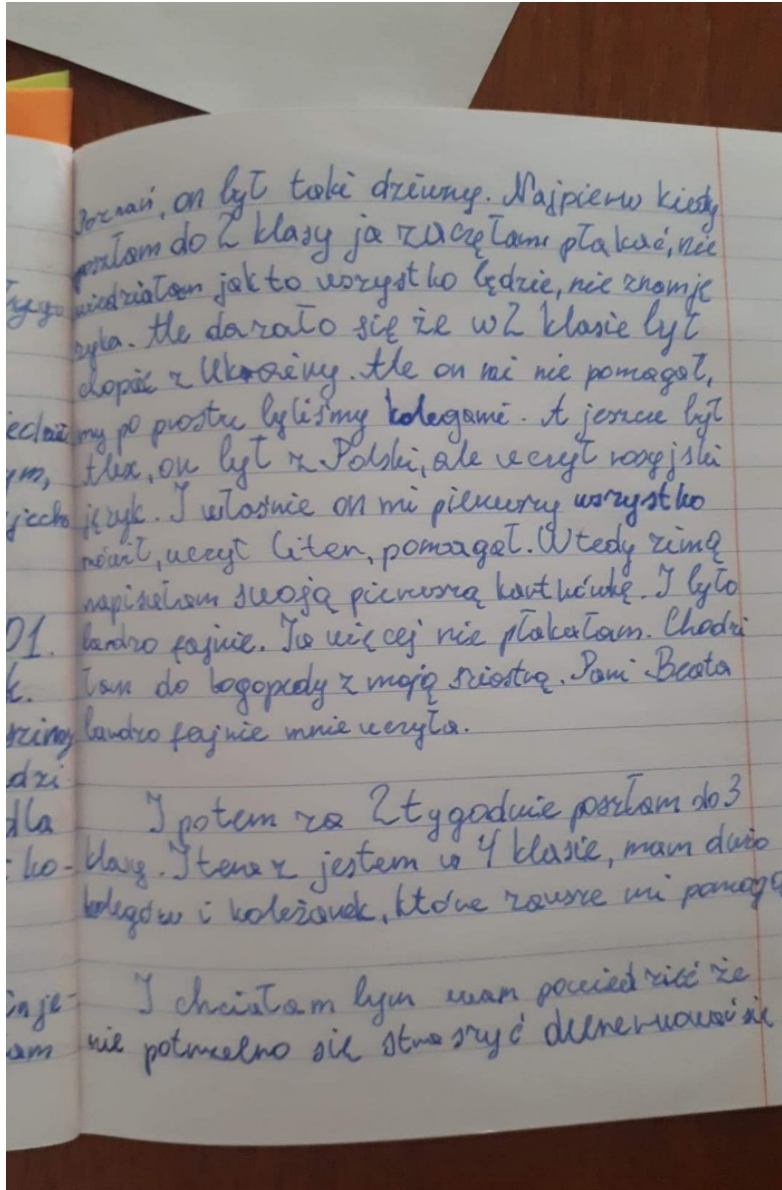 Poznań, on był taki dziwny. Najpierw kiedy
poszłam do 2 klasy ja zaczęłam płakać, nie
wiedziałam jak to wszystko będzie, nie znam ję
zyka. Ale dazało się że w 2 klasie był
chłopic z Ukrainy. Ale on mi nie pomagał,
my po prostu byliśmy kolegami. A jeszcze był
Alex, on był z Polski, ale uczył rosyjski
język. I właśnie on mi pierwszy wszystko
mówił, uczył liter, pomagał. Wtedy zimą
napisałam swoją pierwszą kartkówkę. I było
bardzo fajnie. Ja więcej nie płakałam. Chodzi
łam do logopedy z moją siostrą. Pani Beata
bardzo fajnie mnie uczyła.
I potem za 2 tygodnie poszłam do 3
klasy. I teraz jestem w 4 klasie, mam dużo
kolegów i koleżanek, które zawsze mi pomogą
I chciałam bym wam powiedzieć że
nie potrzebno się straszyć denerwować się
01.
k.
dzi
dla
ko-
inje-
am
ym,